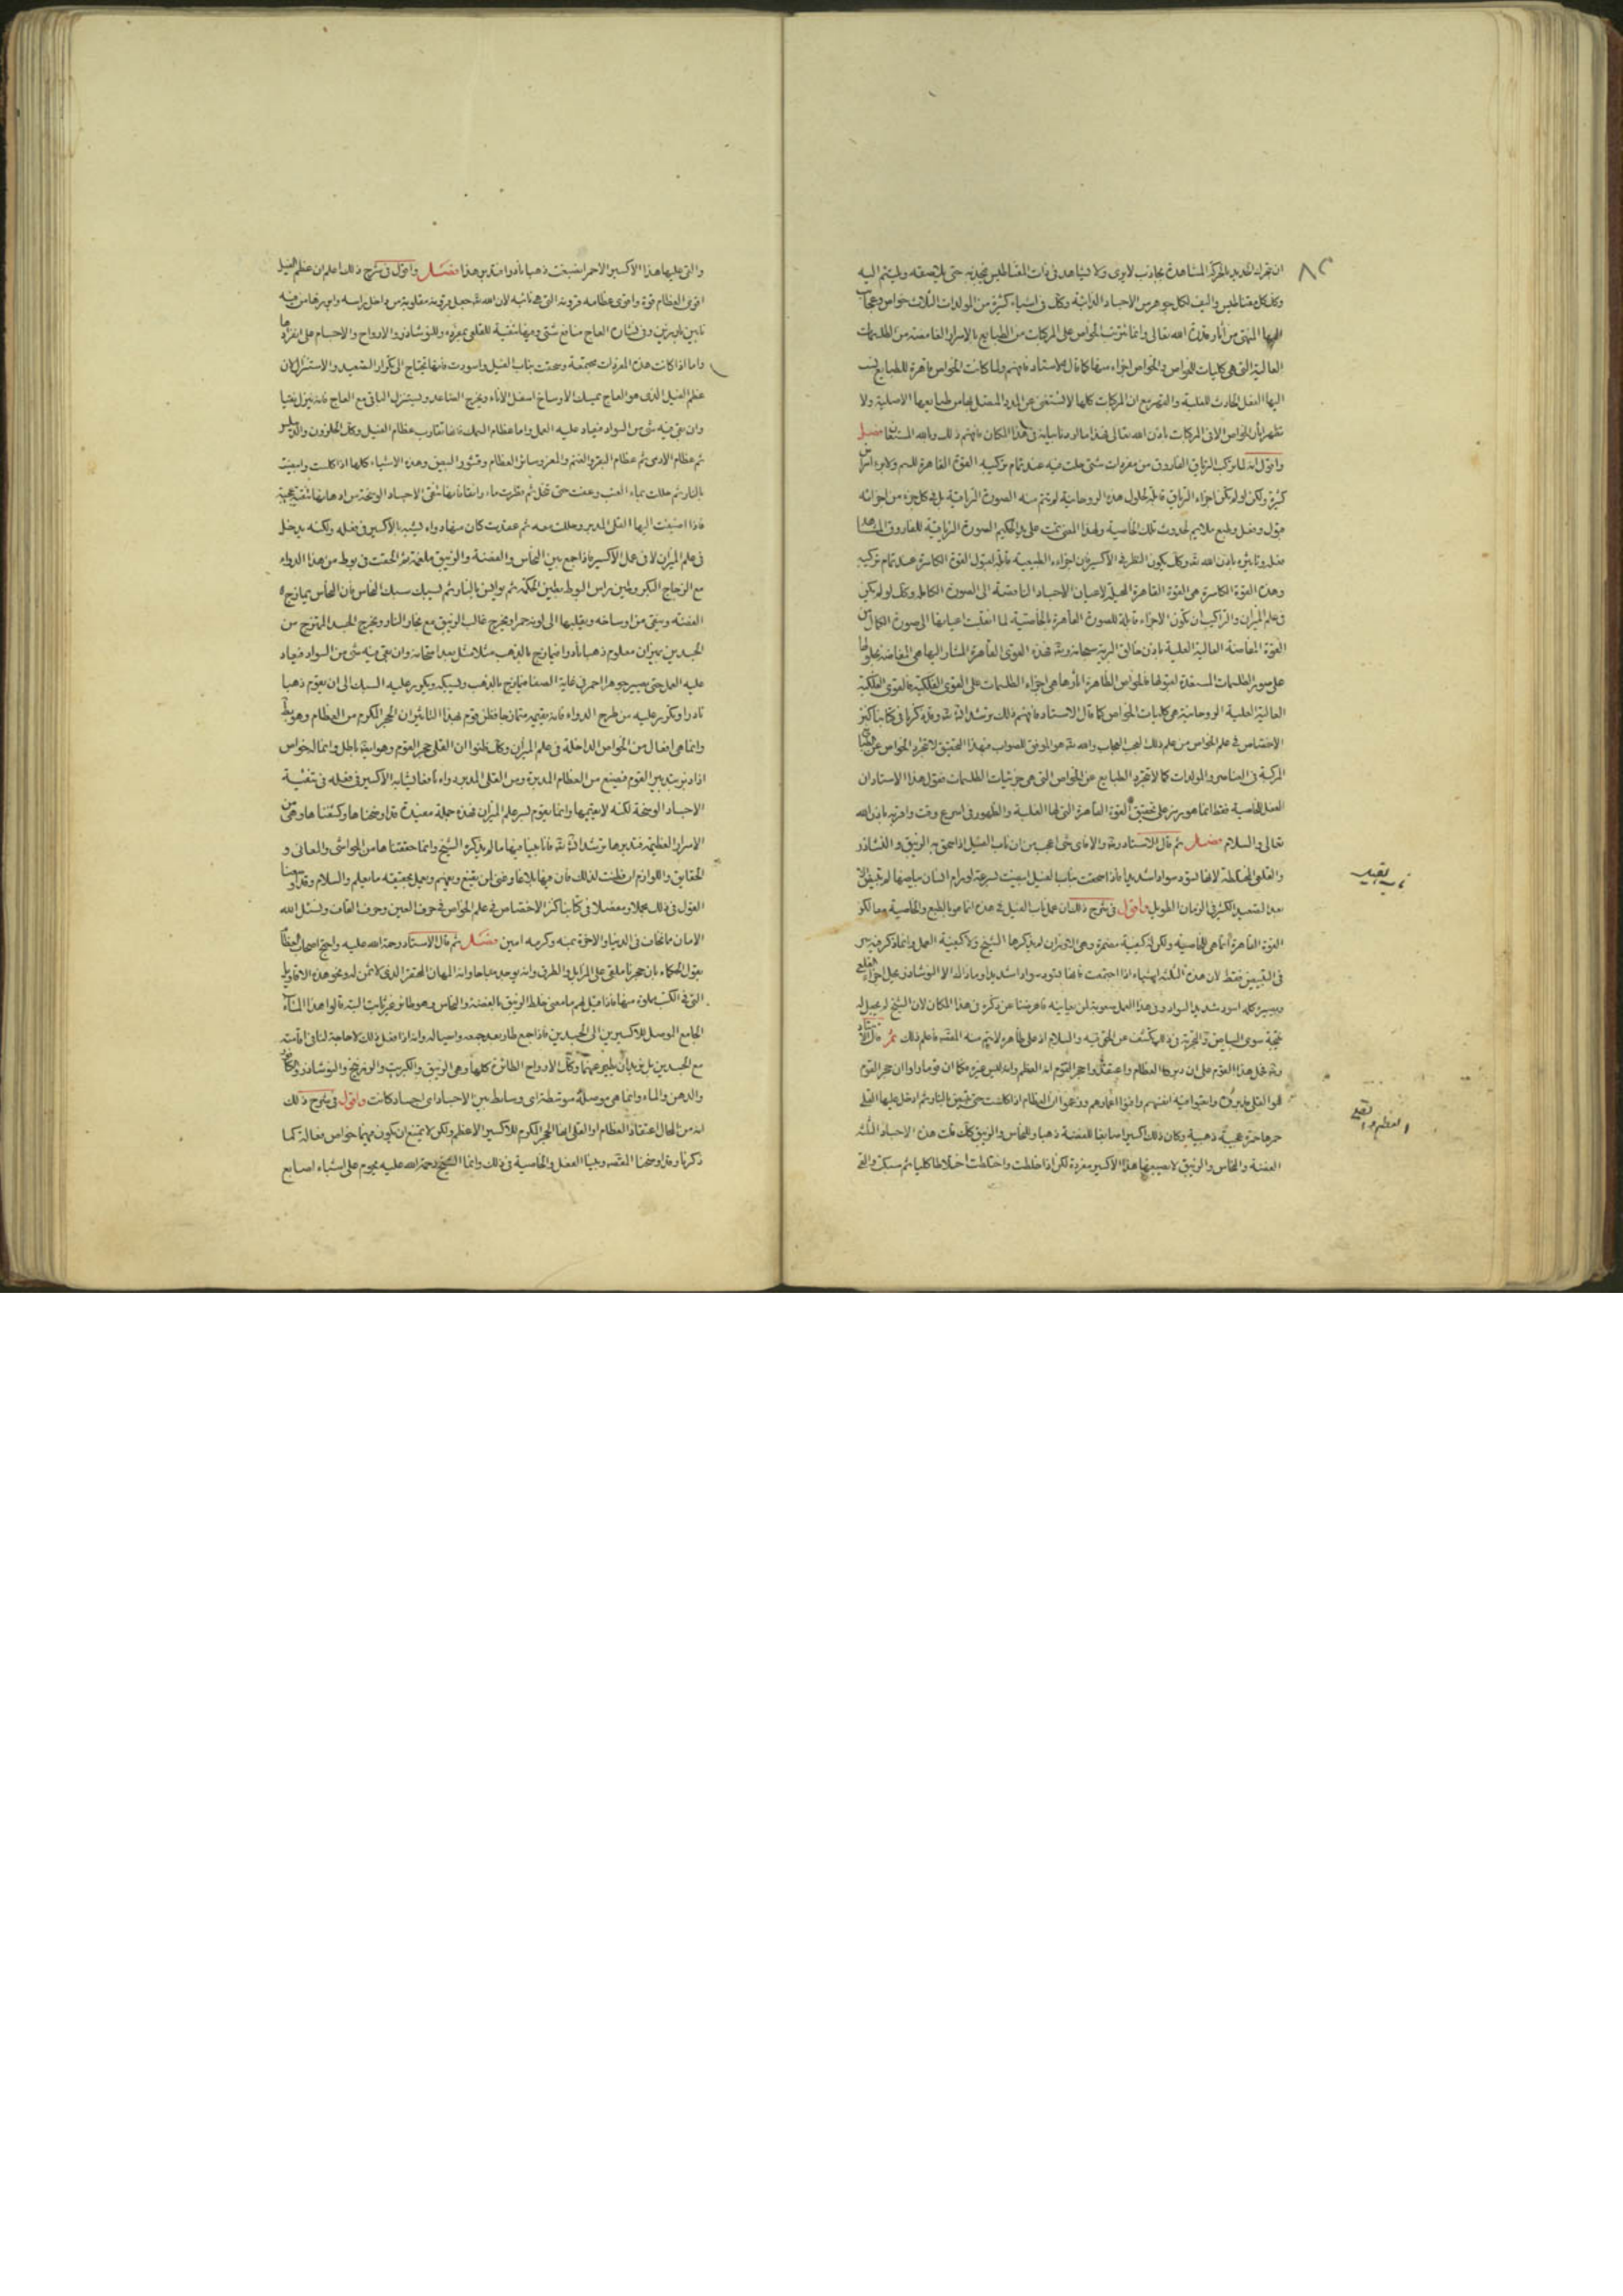 ٨٢
ان يتحرك الحديد بالحركة المشاهدة بجاذب لا يرى ولا يشاهد فى ذات المغناطيس يجذبه حتى يلاصقه ويلتئم اليه
وكذلك مغناطيس واليف لكل جوهر من الاجساد الذائبة وكذلك فى اشياء كثيرة من المولدات الثلاث خواص وعجائب
المنتهى من آثار قدرة الله تعالى وانما ترتب الخواص على المركبات من الطبايع بالاسرار الغامضة من الطلسمات
العالية التى هى كليات للخواص والخواص اجزاء منها كما قال الاستاد فافهم ولما كانت الخواص قاهرة للطبايع نسب
اليها الفعل الحادث للغلبة والقهر مع ان المركبات كلها لا تستغنى عن المدد المتصل بها من طبايعها الاصلية ولا
تظهر الخواص الا فى المركبات باذن الله تعالى فهذا ما اردنا بيانه فى هذا المكان فافهم ذلك وبالله المستعان فصل
واقول انه لما تركب الترياق الفاروق من مفردات شتى حلت فيه عند تمام تركيبه القوة القاهرة للسم
كثيرة ولكن لو لم تكن اجزاء الترياق قابلة لحلول هذه الروحانية لم يتم منه الصورة الترياقية بل فى كل جزء من اجزائه
قبول وفعل وطبع ملايم لحدوث تلك الخاصية ولهذا المعنى تمت على يد الحكيم الصورة الترياقية للفاروق
فعله وتاثيره باذن الله وكذلك يكون النظر فى الاكسير فان اجزاءه الطبيعية قابلة لقبول القوة الكاسرة عند تمام تركيبه
وهذه القوة الكاسرة هى القوة القاهرة المحيلة لاعيان الاجساد الناقصة الى الصورة الكاملة وكذلك لو لم يكن
فى علم الميزان والتراكيب ان تكون الاجزاء قابلة للصورة القاهرة بالخاصية لما انقلبت اعيانها الى صورة الكمال من
القوة الفايضة العالية العلية باذن خالق البرية سبحانه وتعالى فهذه القوى القاهرة المشار اليها هى الفايضة
على صور الطلسمات المستعدة لقبولها فالخواص الظاهرة اثارها هى اجزاء الطلسمات على القوى الفلكية فالقوى الفلكية
العالية العلية الروحانية هى كليات الخواص كما قال الاستاد فافهم ذلك ترشد ان شاء الله وقد ذكرنا فى كتابنا كنز
الاختصاص فى علم الخواص من علم ذلك العجب العجاب والله هو الموفق للصواب فبهذا التحقيق لا تتجرد الخواص عن
المركبة فى العناصر والمولدات كما لا تتجرد الطبايع عن الخواص التى هى جزئيات الطلسمات فقول هذا الاستاد ان
الفعل للخاصية فقط انما هو رمز على تحقيق القوة القاهرة التى لها الغلبة والظهور فى اسرع وقت واقربه باذن الله
تعالى والسلام فصل ثم قال الاستاد والافاى شى اعجب من ان ناب الفيل اذا سحق به الزيبق والنشادر
والقلعى المختلطة لانها تسود سوادا شديدا فاذا سحقت بناب الفيل ابيضت بسرعة
بعد التصعيد الكثير فى الزمان الطويل واقول فى شرح ذلك ان عمل ناب الفيل فى هذه انما هو بالطبع والخاصية
القوة القاهرة انما هى للخاصية ولكن له كيفية مضمرة وهى لم يذكرها الشيخ ولا كيفية العمل وانما ذكر
فى التبييض فقط لان هذه الثلثة اشياء اذا اجتمعت فانها تسود سوادا شديدا وما ذاك الا لان النوشادر يحل اجزاء القلعى
ويصيره كله اسود شديد السواد وفى هذا العمل صعوبة لمن يعاينه فاعرضنا عن ذكره فى هذا المكان لان الشيخ لم يجعل له
نتيجة سوى البياض والتجربة فى ذلك تكشف عن الحق فيه والسلام اذ على ظاهره لا يتم منه المقصد فاعلم ذلك ثم قال الاستاد
وقد عمل هذا القوم على ان دبروا العظام واعتقدوا حجر القوم انه العظم وانه ليس غيره كما ان قوما راوا ان حجر القوم
هو القلى يدبروه واتعبوا فيه انفسهم وافنوا اعمارهم وزعموا ان العظام اذا كلست حتى تبيض بالنار ثم ادخل عليها القلى
حمرها حمرة عجيبة ذهبية وكان ذلك اكسيرا صابغا للفضة ذهبا وللنحاس والزيبق كذلك قلت هذه الاجساد الثلثة
الفضة والنحاس والزيبق لا يصبغها هذا الاكسير مفردة لكن اذا خلطت واختلطت اختلاطا كليا ثم سبكت والقى
ناب الفيل
العظم والقلى
والقى عليها هذا الاكسير الاحمر انصبغت ذهبا نادرا فتدبر هذا فصل واقول فى شرح ذلك اعلم ان عظم الفيل
اقوى العظام قوة واقوى عظامه قرونه التى هى نابيه لان الله جعل قرونه مقلوبة من داخل راسه وابرزها من فيه
نابين بارزين وفى نشارة العاج منافع شتى ومنها تنقية للقلعى بمفرده وللنوشادر والارواح والاجسام على انفرادها
واما اذا كانت هذه المفردات مجتمعة وسحقت بناب الفيل واسودت فانها تحتاج الى تكرار التصعيد والاستنزال لان
عظم الفيل الذى هو العاج يمسك الاوساخ اسفل الاناء ويخرج الصاعد ويستنزل الباقى مع العاج فانه ينزل نقيا
وان بقى فيه شى من السواد فيعاد عليه العمل واما عظام السمك فانها تقارب عظام الفيل وكذلك الحلزون
ثم عظام الادمى ثم عظام البقر والغنم والمعز وسائر العظام وقشور البيض وهذه الاشياء كلها اذا كلست وابيضت
بالنار ثم حللت بماء العنب وعفنت حتى تنحل ثم قطرت ماء رائقا فانها تنقى الاجساد الوسخة من ادهانها تنقية عجيبة
فاذا اضيفت اليها القلى المدبر وحللت معه ثم عقدت كان منها دواء يشبه بالاكسير فى فعله ولكنه يدخل
فى علم الميزان لا فى عمل الاكسير فاذا جمع بين النحاس والفضة والزيبق ملغمة ثم الحقت فى بوط من هذا الدواء
مع الزجاج المكبر وطين براس البوط بطين الحكمة ثم يوافق بالنار ثم يسبك سبك النحاس فان النحاس يمازج
الفضة وينقى من اوساخه ويقلبها الى لونه حمراء ويخرج غالب الزيبق مع بخار النار ويخرج الجسد الممتزج من
الجسدين بميزان معلوم ذهبا نادرا فيمازج بالذهب مثلا بمثل بعد امتحانه وان بقى فيه شى من السواد فيعاد
عليه العمل حتى يصير جوهرا احمر فى غاية الصفا فيمازج بالذهب ويسبك ويكرر عليه السبك الى ان يقوم ذهبا
نادرا وتكرر عليه من طرح الدواء فانه يقيمه فظن قوم لهذا التاثير ان الحجر المكرم من العظام وهو باطل
وانما هى افعال من الخواص الداخلة فى علم الميزان وكذلك ظنوا ان القلى حجر القوم وهو ايضا باطل وانما الخواص
اذا دبرت بتدبير القوم فيصنع من العظام المدبرة ومن القلى المدبر دواء نافعا يشابه الاكسير فى فعله فى تنقية
الاجساد الوسخة لكنه لا يقيمها وانما يقوم بسر علم الميزان فهذه جملة مفيدة قد اوضحناها وكشفناها وهى من
الاسرار العظيمة فتدبرها ترشد ان شاء الله فانا جينا فيها ما لم يذكره الشيخ وانما حققناها من الحواشى والمعانى و
الحقايق واللوازم ان فطنت لذلك فان فيها بلاغا وغنى لمن يقنع ويفهم ويعمل بحقيقة ما يعلم والسلام وقد اوسعنا
القول فى ذلك مجملا ومفصلا فى كتابنا كنز الاختصاص فى علم الخواص فى حرف العين وحرف القاف ونسئل الله
الامان مما نخاف فى الدنيا والاخرة بمنه وكرمه امين فصل ثم قال الاستاد رحمة الله عليه واحتج اصحاب العظام
بقول الحكماء بان حجرنا ملقى على المزابل والطرق وانه يوجد مباحا وانه المهان المحتقر الذى لا ثمن له ونحو هذه الاقاويل
التى فى الكتب مملوة منها فاذا قيل لهم ما معنى خلط الزيبق بالفضة والنحاس وهو طائر غير ثابت البتة قالوا هذا
الجامع الموصل للاكسيرين الى الجسدين فاذا جمع طار بعد جمعه وايصاله وانه اذا فعل ذلك لا حاجة لنا فى اقامته
مع الجسدين بل نريد ان يطير عنهما وكذلك الارواح الطائرة كلها وهى الزيبق والكبريت والزرنيخ والنوشادر والكافور
والدهن والماء وانما هى موصلة متوسطة اى وسائط بين الاجساد اى اجساد كانت واقول فى شرح ذلك
انه من المحال اعتقاد العظام او القلى انها الحجر المكرم للاكسير الاعظم ولكن لا يمتنع ان يكون فيهما خواص فعالة كما
ذكرنا وقد اوضحنا القصد وبينا الفعل والخاصية فى ذلك وانما الشيخ رحمة الله عليه يحوم على اشياء اصابع